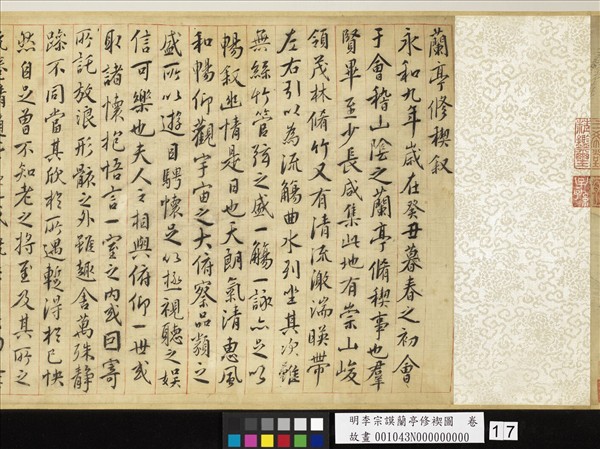 蘭亭修禊叙
永和九年歲在癸丑暮春之初會
于會稽山陰之蘭亭脩稧事也羣
賢畢至少長咸集此地有崇山峻
領茂林脩竹又有清流激湍暎帶
左右引以為流觴曲水列坐其次雖
無絲竹管弦之盛一觴一詠亦足以
暢叙幽情是日也天朗氣清惠風
和暢仰觀宇宙之大俯察品類之
盛所以遊目騁懷足以極視聽之娱
信可樂也夫人之相與俯仰一世或
取諸懷抱悟言一室之內或因寄
所託放浪形骸之外雖趣舍萬殊靜
躁不同當其欣於所遇暫得於己怏
然自足曾不知老之將至及其所之
明李宗謨蘭亭修禊圖 卷
故畫 001043N000000000
17